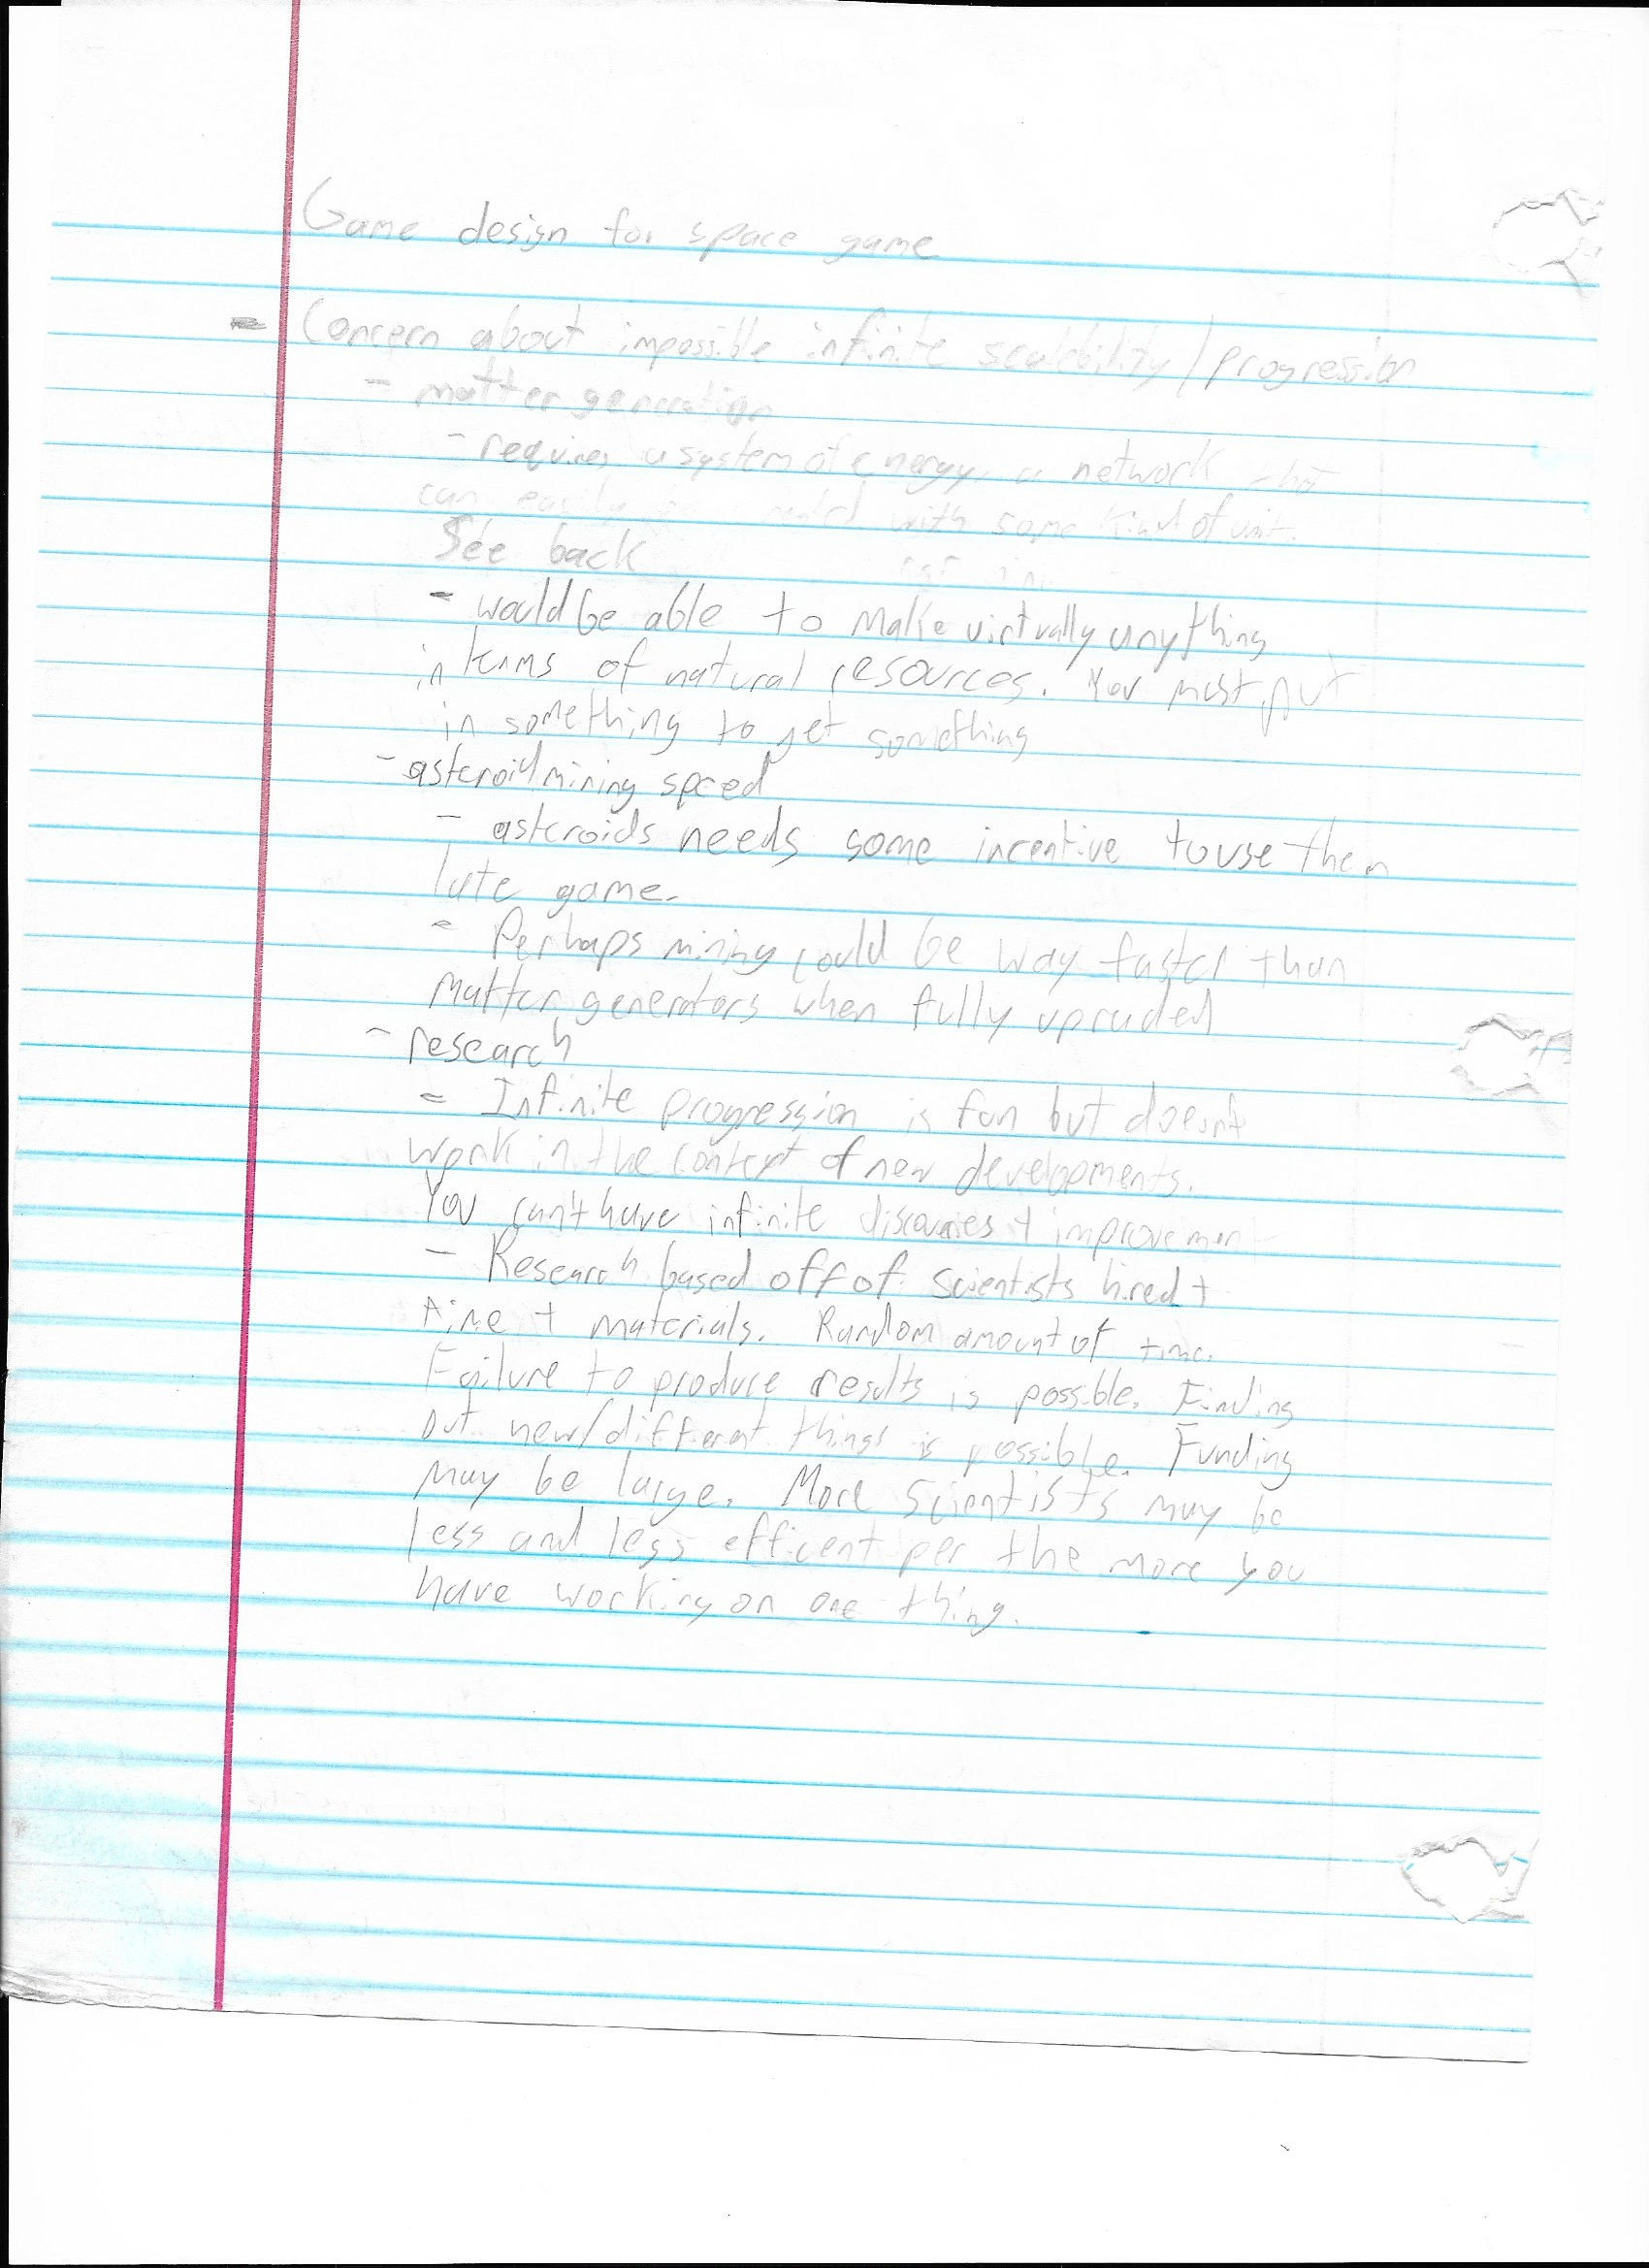 Game design for space game
- Concern about impossible infinite scalability/progression
- matter generation
- requires a system of energy, a network that
can easily with some kind of unit.
See back
- would be able to make virtually anything
in terms of natural resources. You must put
in something to get something
- asteroid mining speed
- asteroids needs some incentive to use them
late game.
- Perhaps mining could be way faster than
matter generators when fully upruded
- research
- Infinite progression is fun but doesn't
work in the context of new developments.
You can't have infinite discoveries + improvement
- Research based off of scientists hired +
time + materials. Random amount of time.
Failure to produce results is possible. Finding
out new/different things is possible. Funding
may be large. More scientists may be
less and less efficent per the more you
have working on one thing.